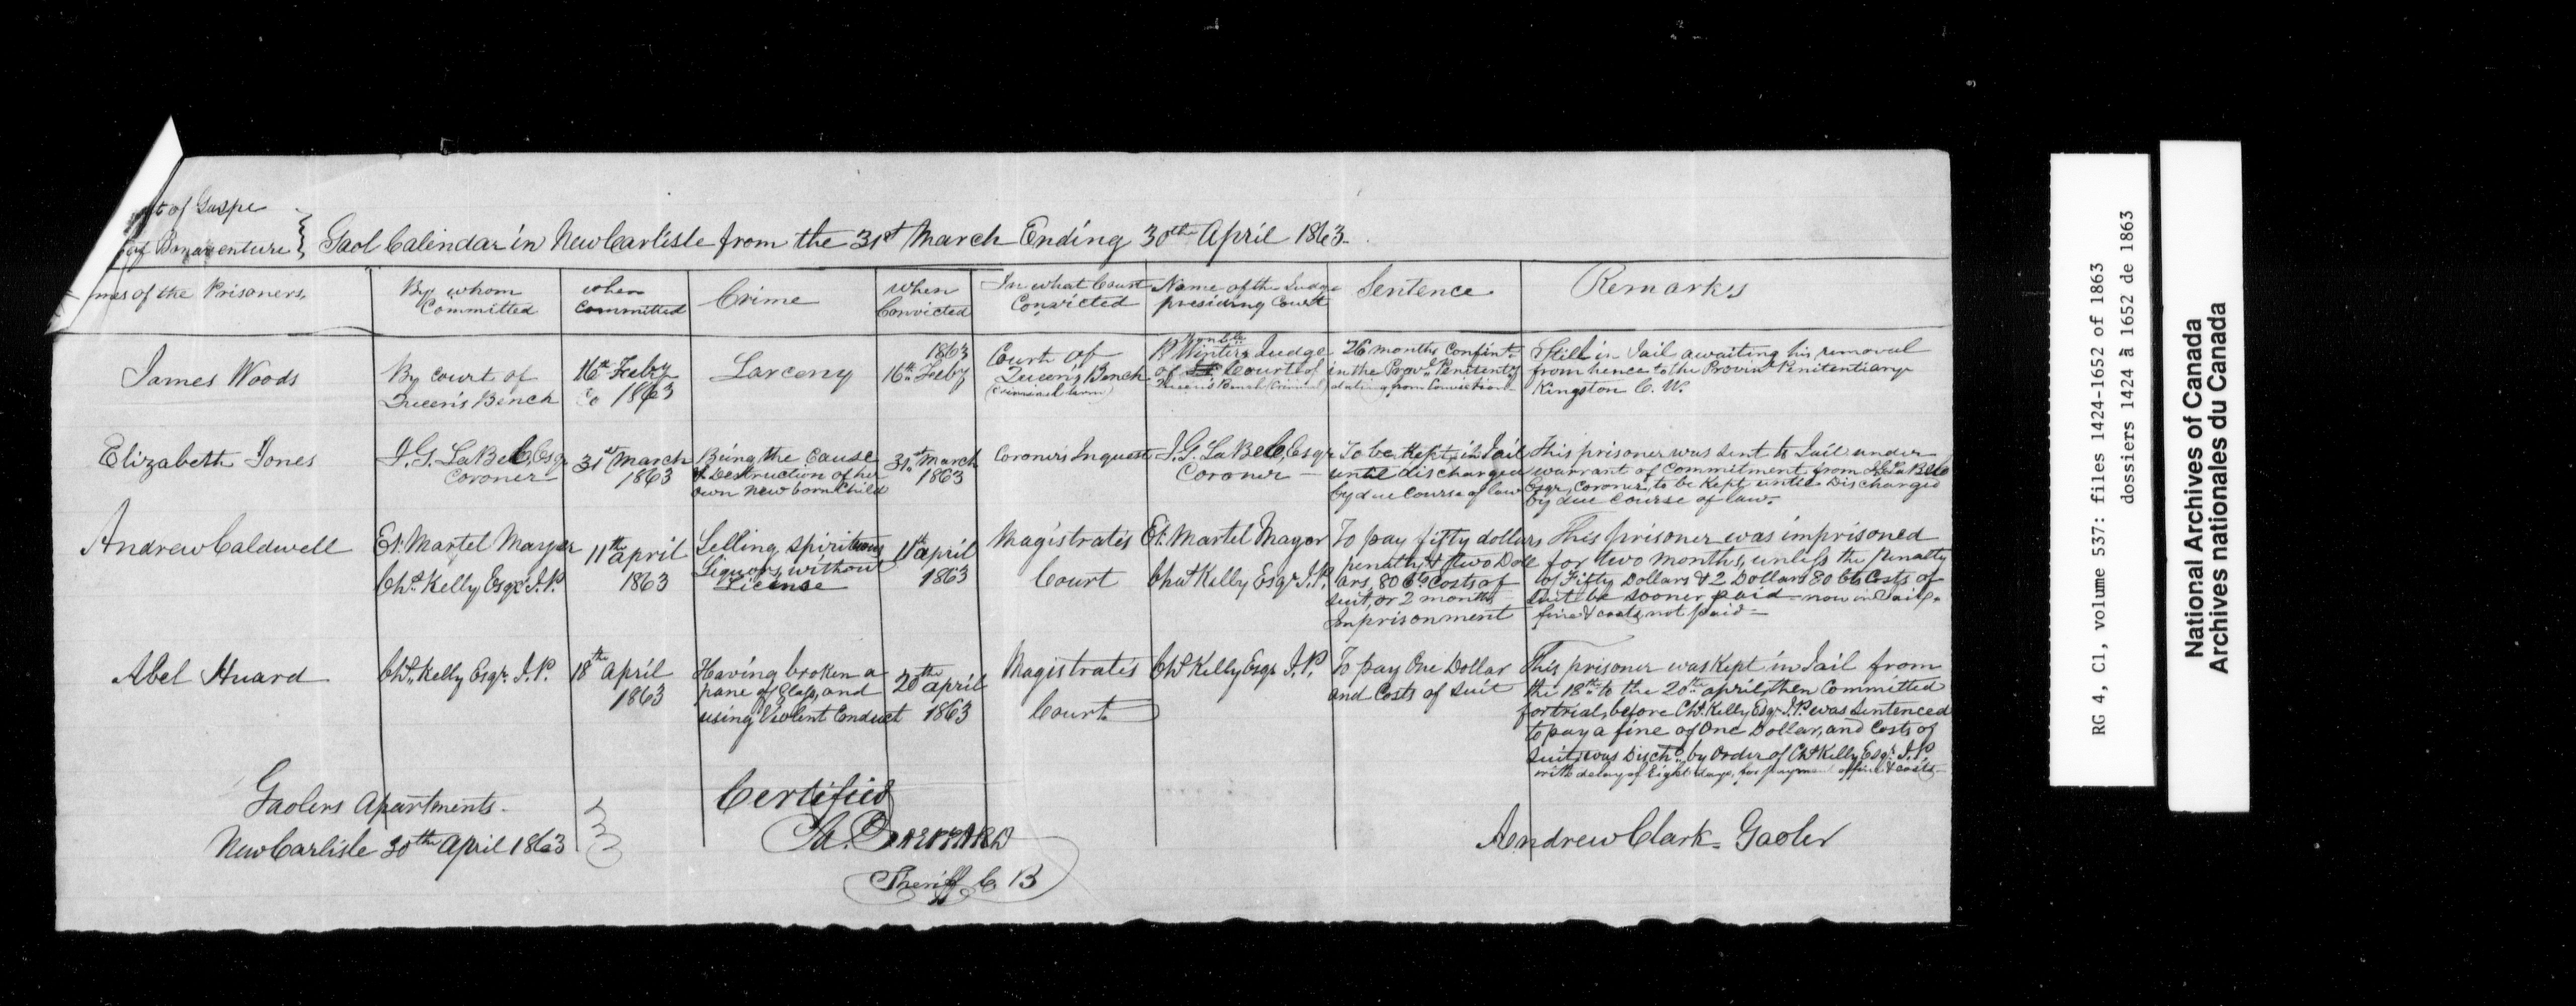 t of Gaspe
of Bonaventure } Gaol Calindar in New Carlisle from the 31st March Ending 30th April 1863.
mes of the Prisoners,
By whom
Committed
when
Committed
Crime
when
Convicted
In what Court
Convicted
Name of the Judge
presiding Court
Sentence
Remarks
James Woods
By Court of
Queen's Bench
16th Feby
1863
Larceny
1863
16th Feby
Court of
Queen's Bench
(Criminal term)
Honble
Winter Judge
of Court of
Queen's Bench (Criminal)
26 months Confint.
in the Prov. Penitenty
dating from Conviction
Still in Jail awaiting his removal
from hence to the Provinl Penitentiary
Kingston C. W.
Elizabeth Jones
J. G. LaBell, Esqr
Coroner
31st March
1863
Being the Cause
of Destruction of her
own New born Child
31st March
1863
Coroner's Inquest
J. G. LaBell, Esqr
Coroner
To be Kept in Jail
until discharged
by due Course of law
This prisoner was sent to Jail under
warrant of Commitment from J. G. La Bell
Esqr, Coroner, to be Kept until Discharged
by due Course of law.
Andrew Caldwell
Et. Martel Mayor
Chs. Kelly Esqr. J.P.
11th april
1863
Selling spiritous
Liquors without
License
11th april
1863
Magistrates
Court
Et. Martel Mayor
Chas Kelly Esqr J.P.
To pay fifty dollars
penalty & two Doll
ars, 80 Cts Costs of
suit, or 2 months
Imprisonment
This prisoner was imprisoned
for two months, unless the penalty
of Fifty Dollars & 2 Dollars 80 Cts Costs of
suit be sooner paid - now in Jail,
fine & costs not paid -
Abel Huard
Chs. Kelly Esqr. J.P.
18th april
1863
Having broken a
pane of Glass, and
using Violent Conduct
20th april
1863
Magistrates
Court
Chs Kelly Esqr J.P.
To pay One Dollar
and Costs of suit
This prisoner was Kept in Jail from
the 18th to the 20th april, then Committed
for trial, before Chs. Kelly Esqr J.P. was sentenced
to pay a fine of One Dollar, and Costs of
suit, was Disch'd by Order of Chs Kelly Esqr. J.P.
with delay of Eight days, for payment of fine & costs -
Gaolers Apartments.
New Carlisle 30th April 1863
Certified
Sheriff C B
Andrew Clark - Gaoler
RG 4, C1, volume 537: files 1424-1652 of 1863
dossiers 1424 à 1652 de 1863
National Archives of Canada
Archives nationales du Canada